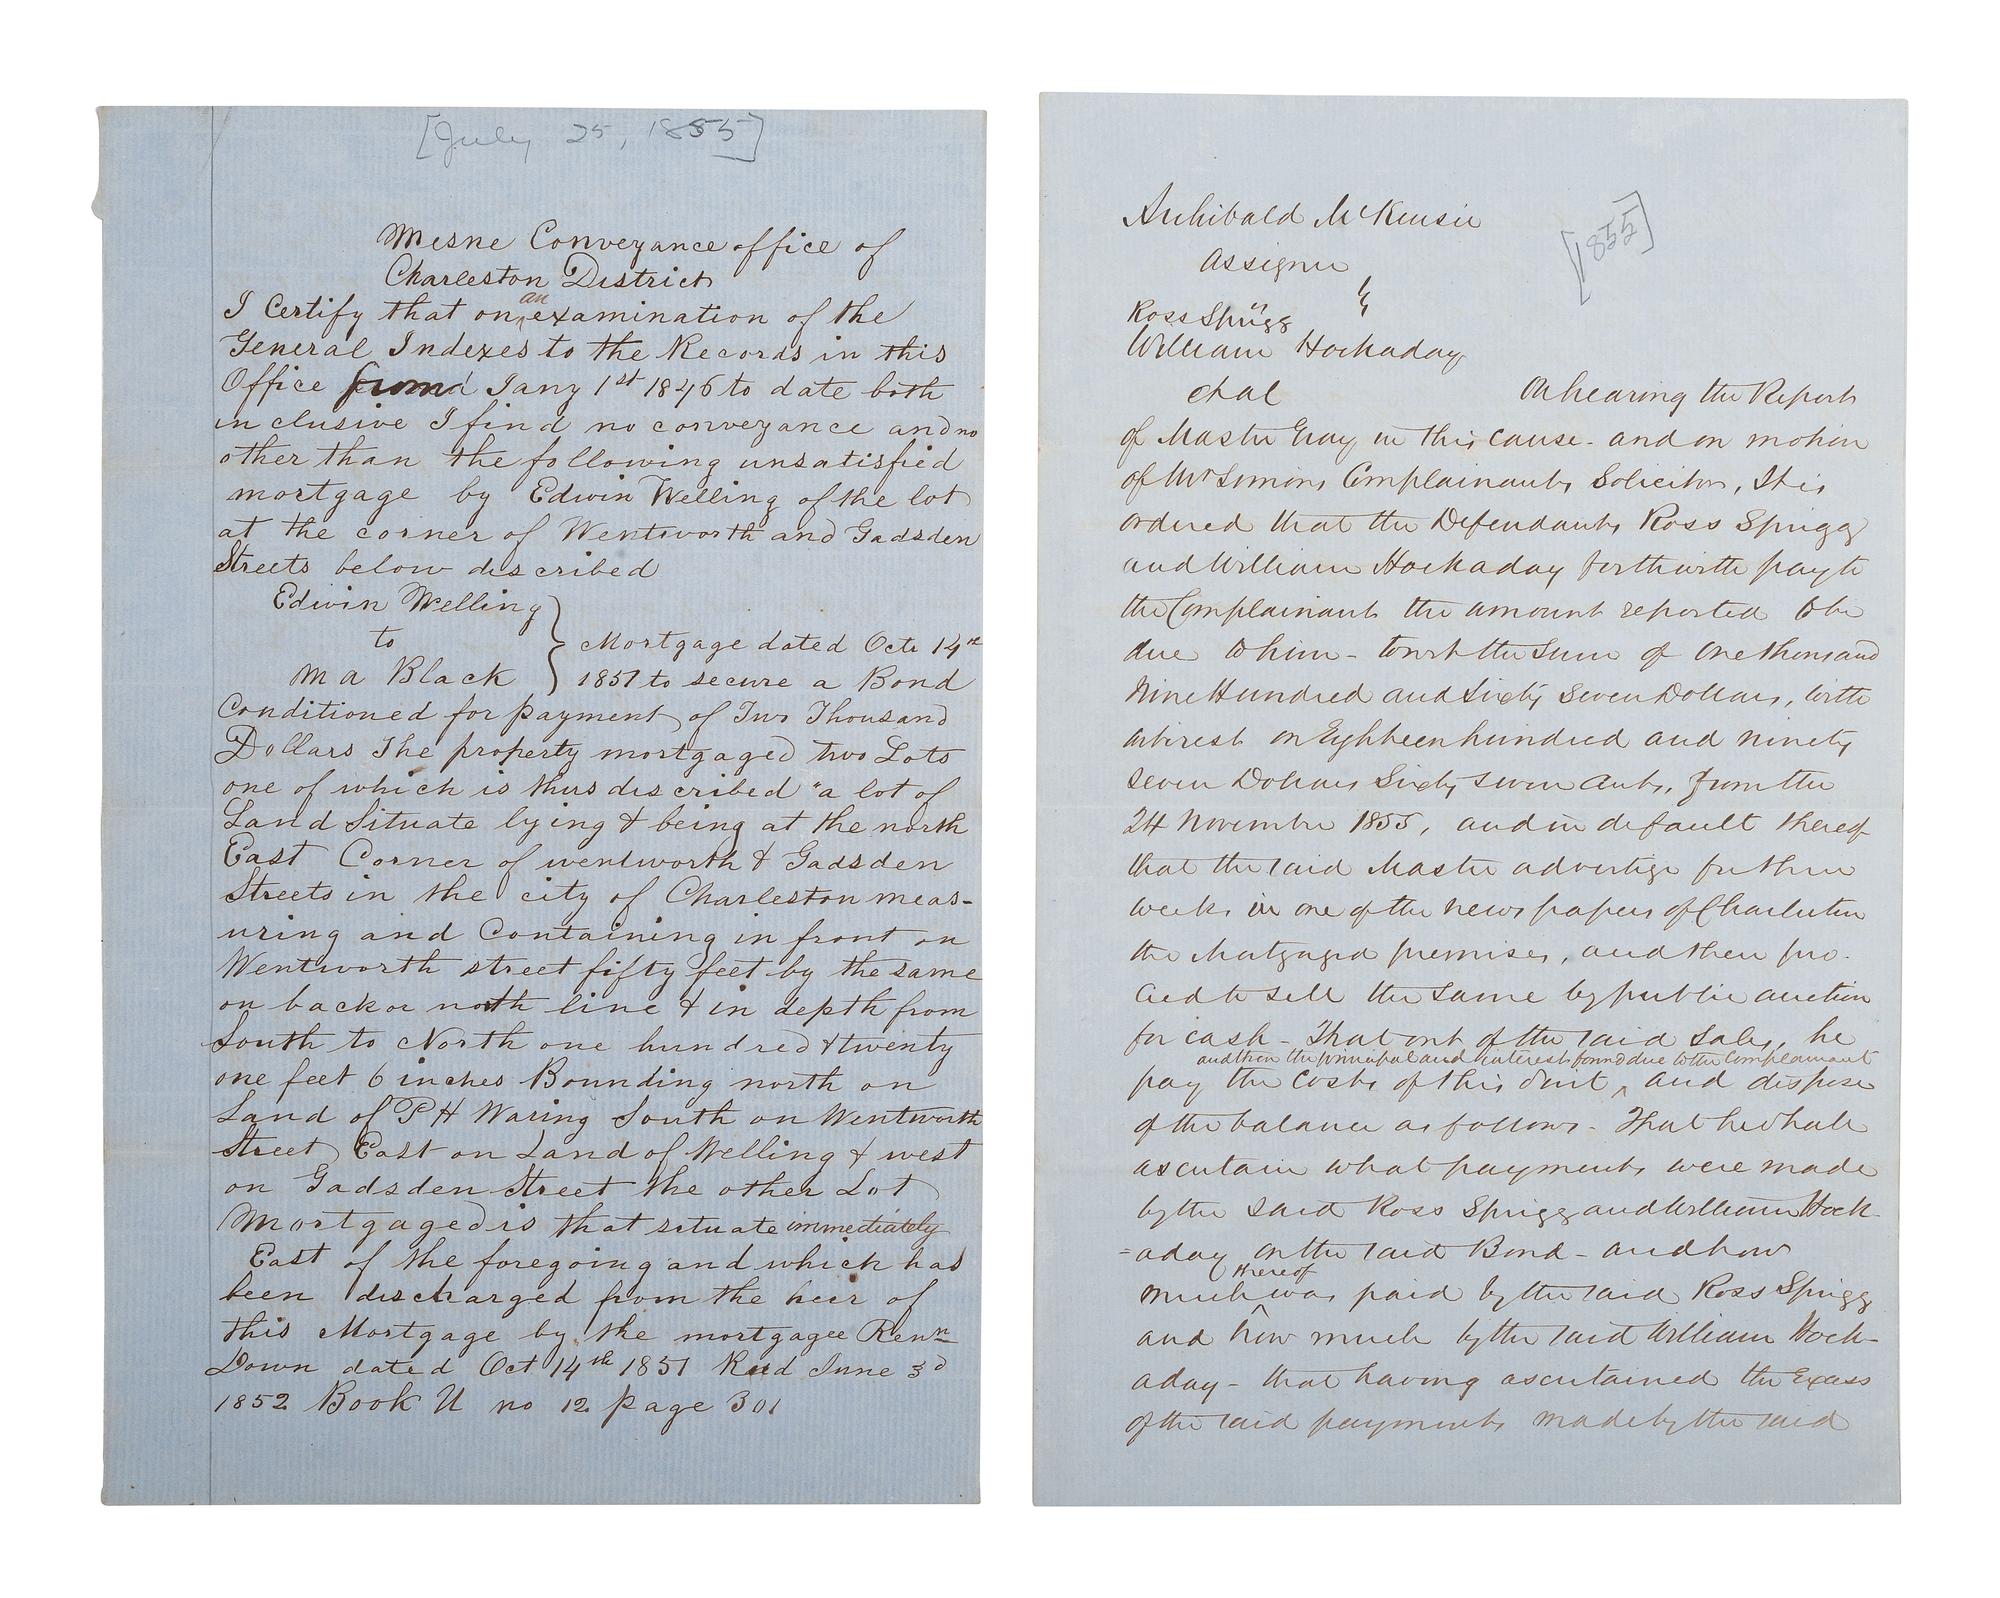 [July 25, 1855]
Mesne Conveyance office of
Charleston District
I Certify that on an examination of the
General Indexes to the Records in this
Office from Jany 1st 1846 to date both
inclusive I find no conveyance and no
other than the following unsatisfied
mortgage by Edwin Welling of the lot
at the corner of Wentworth and Gadsden
Streets below described
Edwin Welling
to
M A Black
Mortgage dated Octr 14th
1851 to secure a Bond
Conditioned for payment of Two Thousand
Dollars The property mortgaged two Lots
one of which is thus described "a lot of
Land Situate lying & being at the north
East Corner of wentworth & Gadsden
Streets in the city of Charleston meas-
uring and Containing in front on
Wentworth street fifty feet by the same
on back or north line & in depth from
South to North one hundred & twenty
one feet 6 inches Bounding north on
Land of P H Waring South on Wentworth
Street East on Land of Welling & west
on Gadsden Street the other Lot
Mortgaged is that situate immediately
East of the foregoing and which has
been discharged from the lien of
this Mortgage by the mortgagee Renn
Down dated Oct 14th 1851 Recd June 3d
1852 Book U no 12 page 301
[1855]
Archibald McKensie
Assignee
vs
Ross Sprigg
William Hockaday
et al
On hearing the Report
of Master Gray in this cause - and on motion
of Mr Simons Complainants Solicitor, It is
ordered that the Defendants Ross Sprigg
and William Hockaday forthwith pay to
the Complainant the amount reported to be
due to him - to wit the Sum of One thousand
Nine Hundred and Sixty Seven Dollars, with
interest on Eighteen hundred and ninety
seven Dollars Sixty seven Cents, from the
24 November 1855, and in default thereof
that the said Master advertize for three
weeks in one of the newspapers of Charleston
the Mortgaged premises, and then pro-
ceed to sell the same by public auction
for cash - That out of the said Sales, he
and then the principal and interest found due to the Complainant
pay the Costs of this Suit, and dispose
of the balance as follows - That he shall
ascertain what payments were made
by the said Ross Sprigg and William Hock-
-aday on the said Bond - and how
thereof
much was paid by the said Ross Sprigg
and how much by the said William Hock-
aday - that having ascertained the Excess
of the said payments made by the said